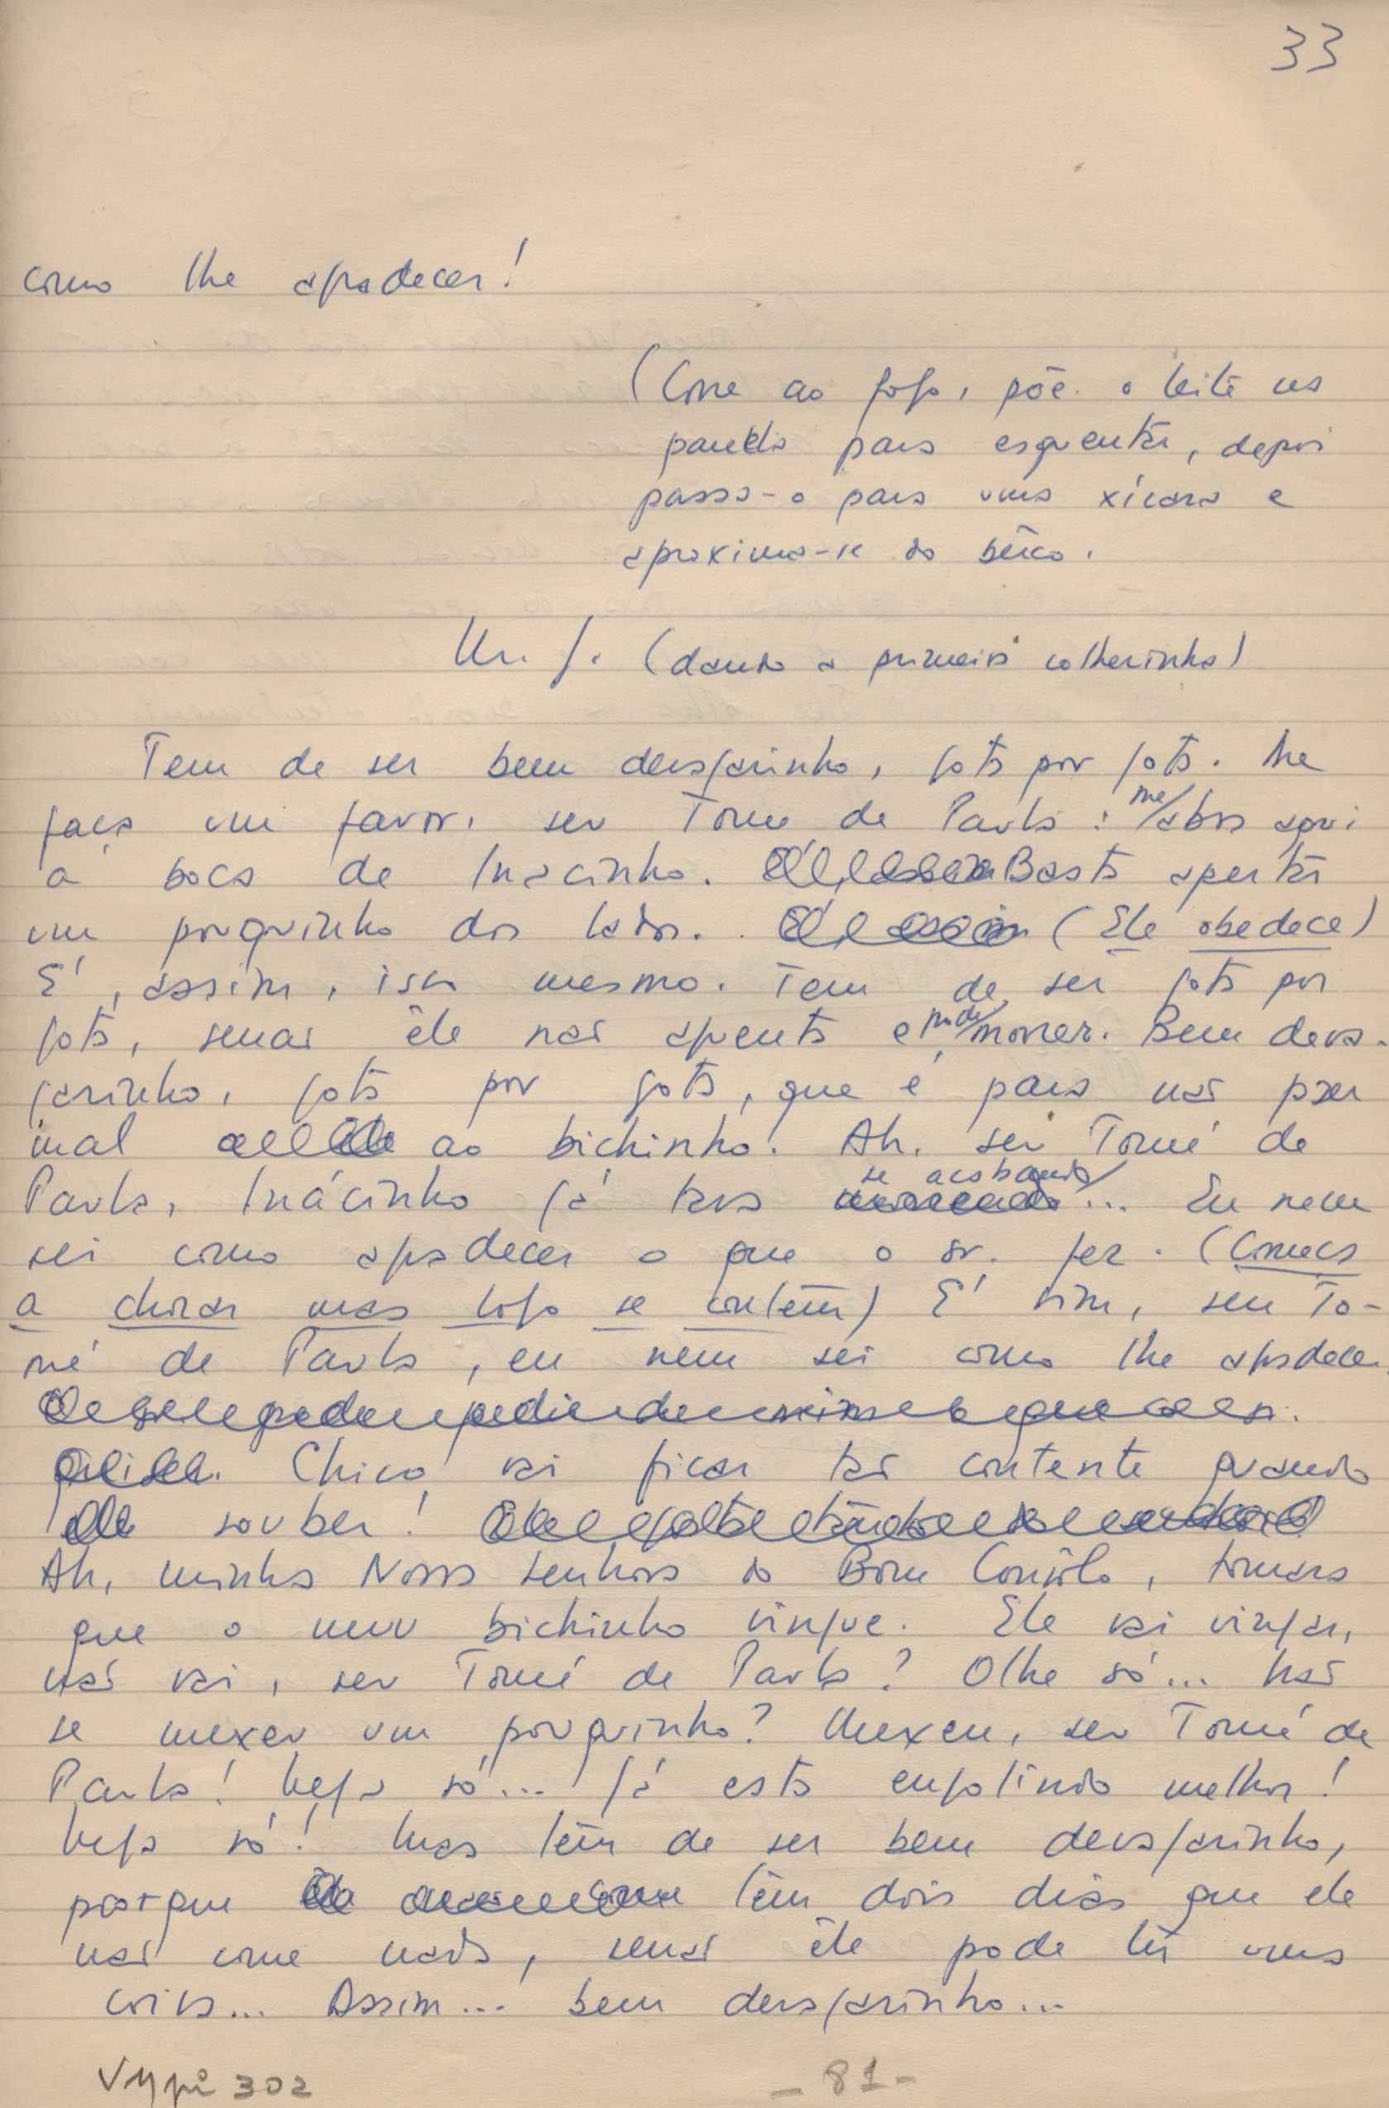 33
como lhe agradecer!
(Corre ao fogo, põe o leite na
panela para esquentar, depois
passa-o para uma xícara e
aproxima-se do bêrço.
(dando a primeira colherinha)
Tem de ser bem devagarinho, gota por gota. Me
faça um favor, seu Tomé de Paula: me abra aqui
a boca de Inacinho. Basta apertar
um pouquinho dos lados. (Ele obedece)
É, assim, isso mesmo. Tem de ser gota por
gota, senão êle não aguenta e pode morrer. Bem deva-
garinho, gota por gota, que é para não fazer
mal ao bichinho. Ah, seu Tomé de
Paula, Inácinho já tava se acabando... Eu nem
sei como agradecer o que o sr. fez. (Começa
a chorar mas logo se contém) É sim, seu To-
mé de Paula, eu nem sei como lhe agradecer.
Chico vai ficar tão contente quando
souber!
Ah, minha Nossa Senhora do Bom Consôlo, tomara
que o meu bichinho vingue. Ele vai vingar,
não vai, seu Tomé de Paula? Olhe só... Não
se mexeu um pouquinho? Mexeu, seu Tomé de
Paula! Veja só... Já esta engolindo melhor!
Veja só! Mas têm de ser bem devagarinho,
porque têm dois dias que ele
não come nada, senão êle pode ter uma
coisa... Assim... bem devagarinho...
302
- 81 -